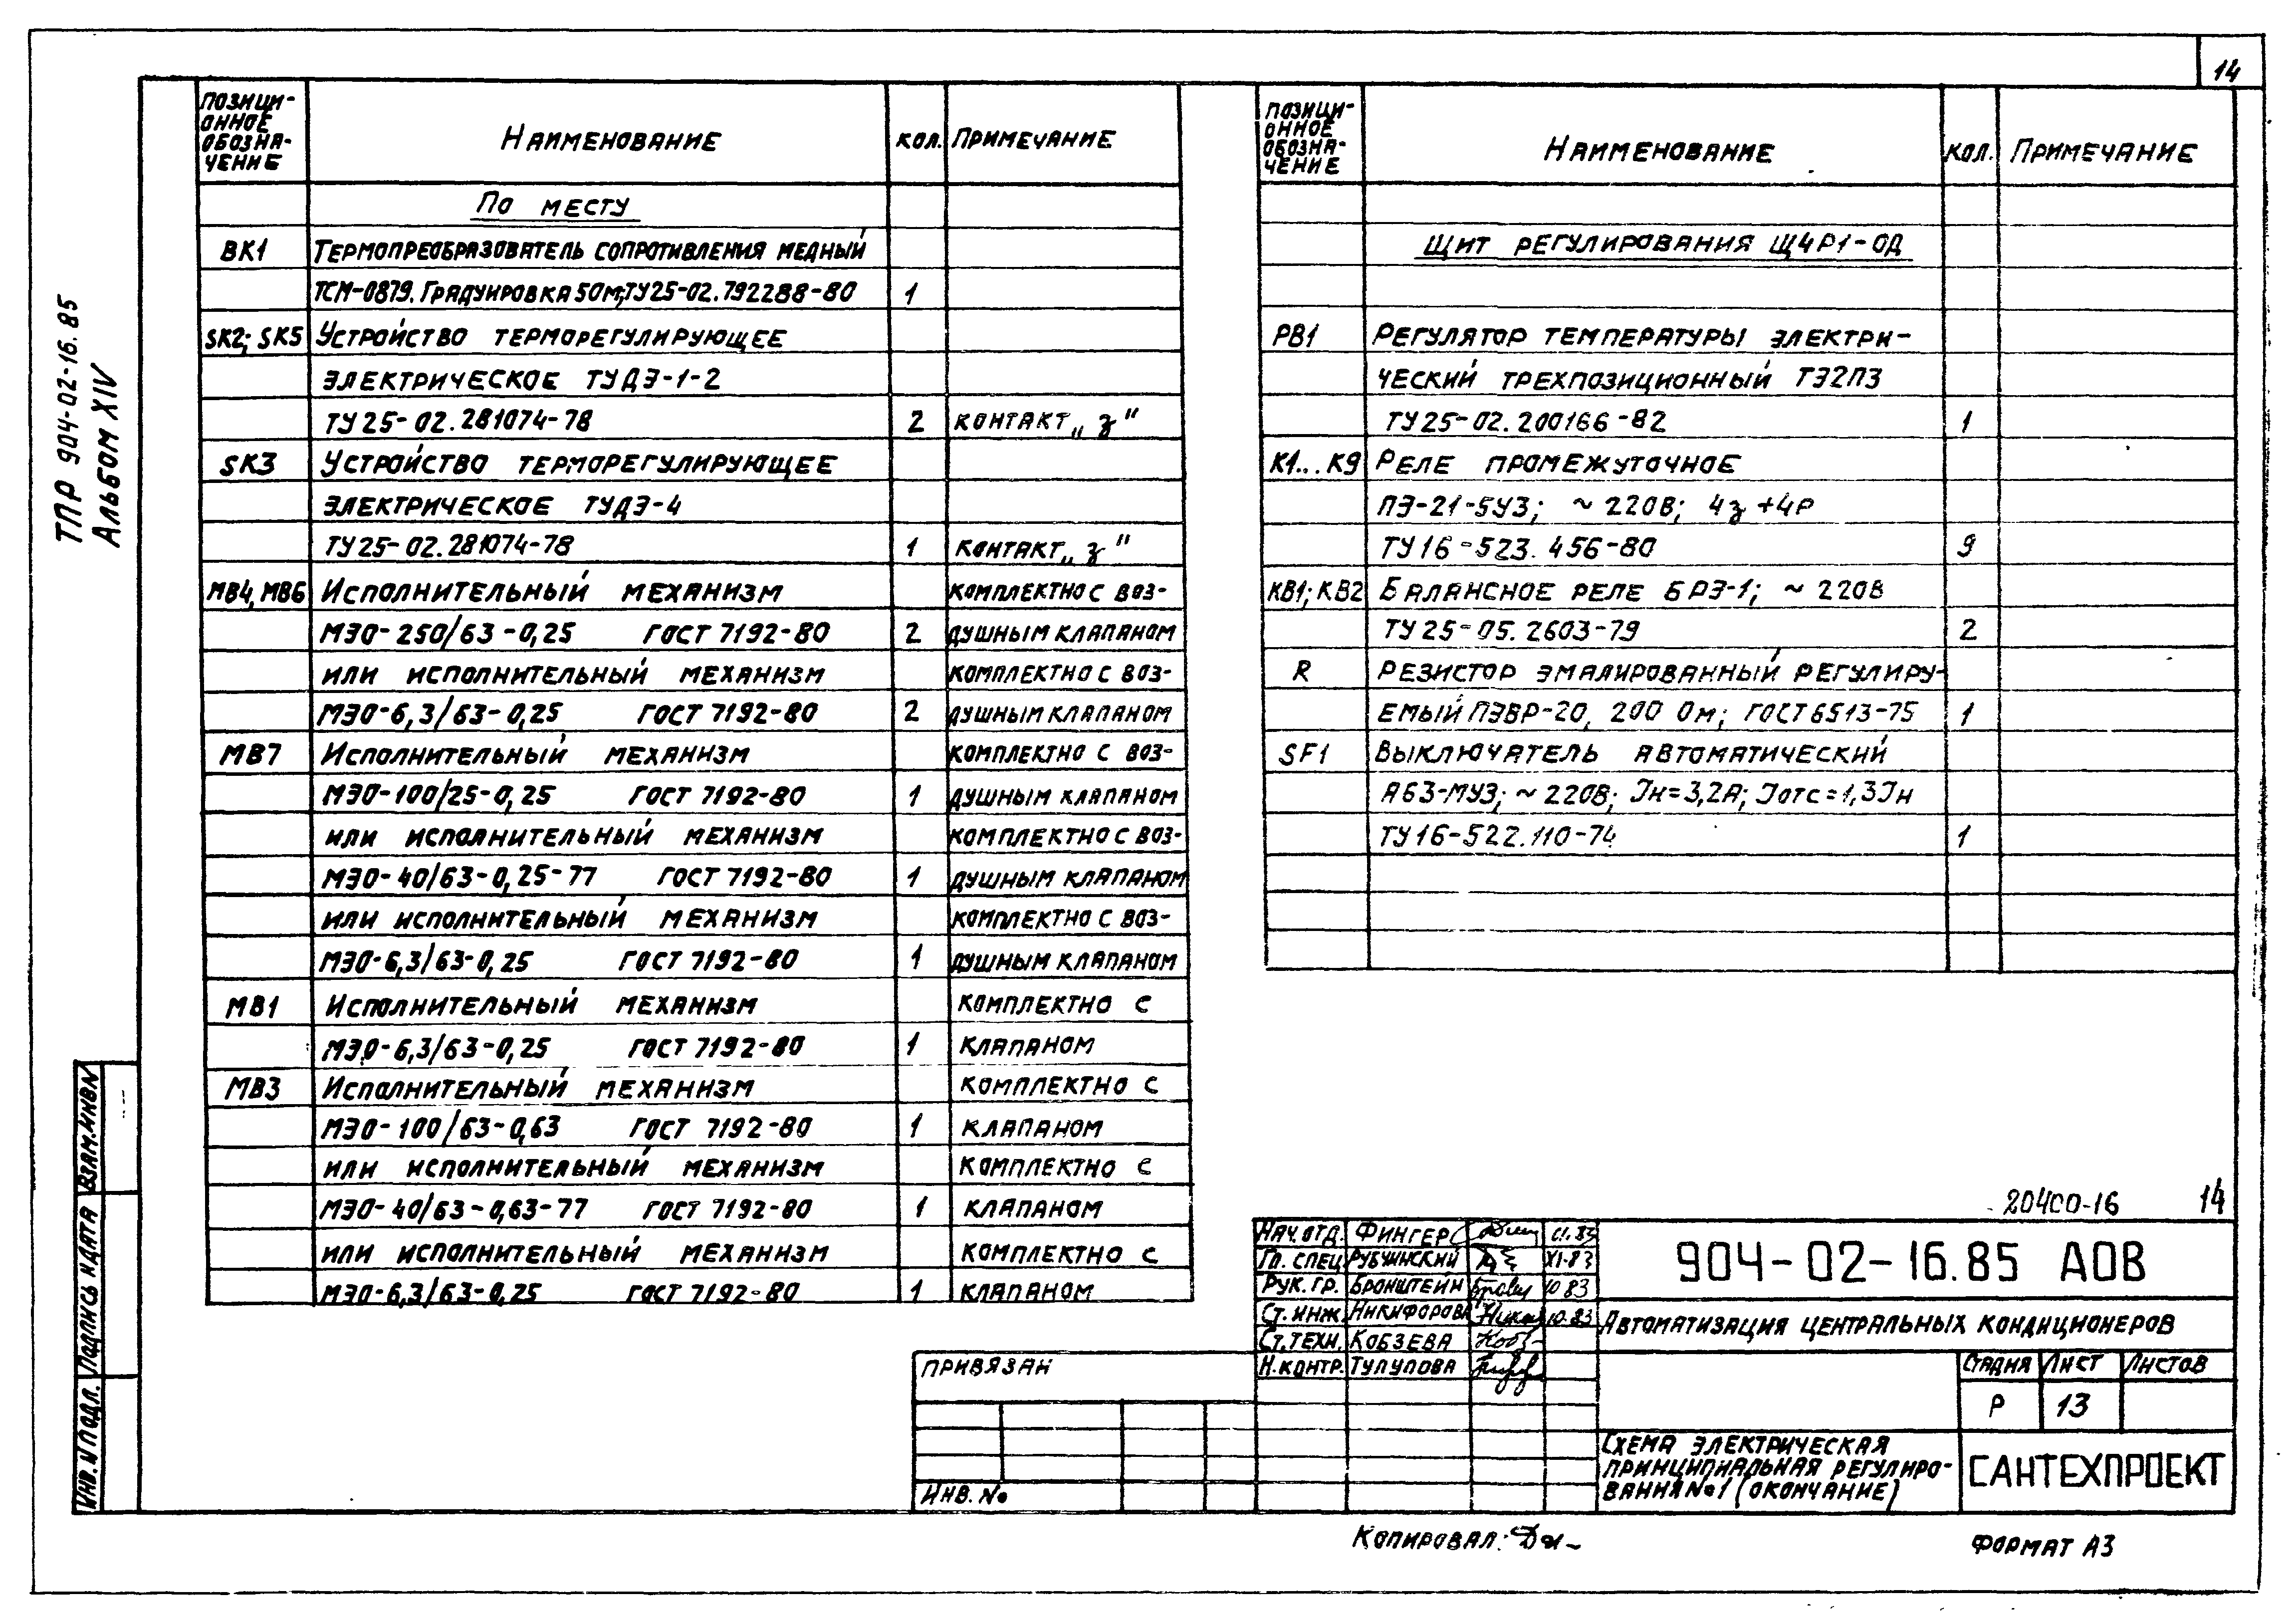 14
ТПР 904-02-16.85
Альбом XIV
Позици-
онное
обозна-
чение
Наименование
Кол.
Примечание
По месту
ВК1 Термопреобразователь сопротивления медный
ТСМ-0879. Градуировка 50м; ТУ25-02.792288-80 1
SK2; SK5 Устройство терморегулирующее
электрическое ТУДЭ-1-2
ТУ 25-02.281074-78 2 контакт „з"
SK3 Устройство терморегулирующее
электрическое ТУДЭ-4
ТУ 25-02.281074-78 1 контакт „з"
МВ4, МВ6 Исполнительный механизм комплектно с воз-
МЭО-250/63-0,25 ГОСТ 7192-80 2 душным клапаном
или исполнительный механизм комплектно с воз-
МЭО-6,3/63-0,25 ГОСТ 7192-80 2 душным клапаном
МВ7 Исполнительный механизм комплектно с воз-
МЭО-100/25-0,25 ГОСТ 7192-80 1 душным клапаном
или исполнительный механизм комплектно с воз-
МЭО-40/63-0,25-77 ГОСТ 7192-80 1 душным клапаном
или исполнительный механизм комплектно с воз-
МЭО-6,3/63-0,25 ГОСТ 7192-80 1 душным клапаном
МВ1 Исполнительный механизм комплектно с
МЭО-6,3/63-0,25 ГОСТ 7192-80 1 клапаном
МВ3 Исполнительный механизм комплектно с
МЭО-100/63-0,63 ГОСТ 7192-80 1 клапаном
или исполнительный механизм комплектно с
МЭО-40/63-0,63-77 ГОСТ 7192-80 1 клапаном
или исполнительный механизм комплектно с
МЭО-6,3/63-0,25 ГОСТ 7192-80 1 клапаном
Позици-
онное
обозна-
чение
Наименование
Кол.
Примечание
Щит регулирования Щ4Р1-ОД
РВ1 Регулятор температуры электри-
ческий трехпозиционный ТЭ2П3
ТУ 25-02.200166-82 1
К1...К9 Реле промежуточное
ПЭ-21-5У3; ~ 220В; 4з+4р
ТУ 16-523.456-80 9
КВ1; КВ2 Балансное реле БРЭ-1; ~ 220В
ТУ 25-05.2603-79 2
R Резистор эмалированный регулиру-
емый ПЭВР-20, 200 Ом; ГОСТ 6513-75 1
SF1 Выключатель автоматический
А63-МУ3; ~ 220В; Iн=3,2А; Iотс=1,3Iн
ТУ16-522.110-74 1
20400-16 14
Нач. отд. Фингер
Гл. спец Рубчинский XI-83
Рук. гр. Бронштейн 10 83
Ст. инж. Никифорова 10.83
Ст. техн. Кобзева
Н. контр. Тулупова
904-02-16.85 АОВ
Автоматизация центральных кондиционеров
Стадия Лист Листов
Р 13
Схема электрическая
принципиальная регулиро-
вания №1 (окончание)
САНТЕХПРОЕКТ
Привязан
Инв. №
Взам. инв N
Подпись и дата
Инв. N подл.
Копировал:
Формат А3